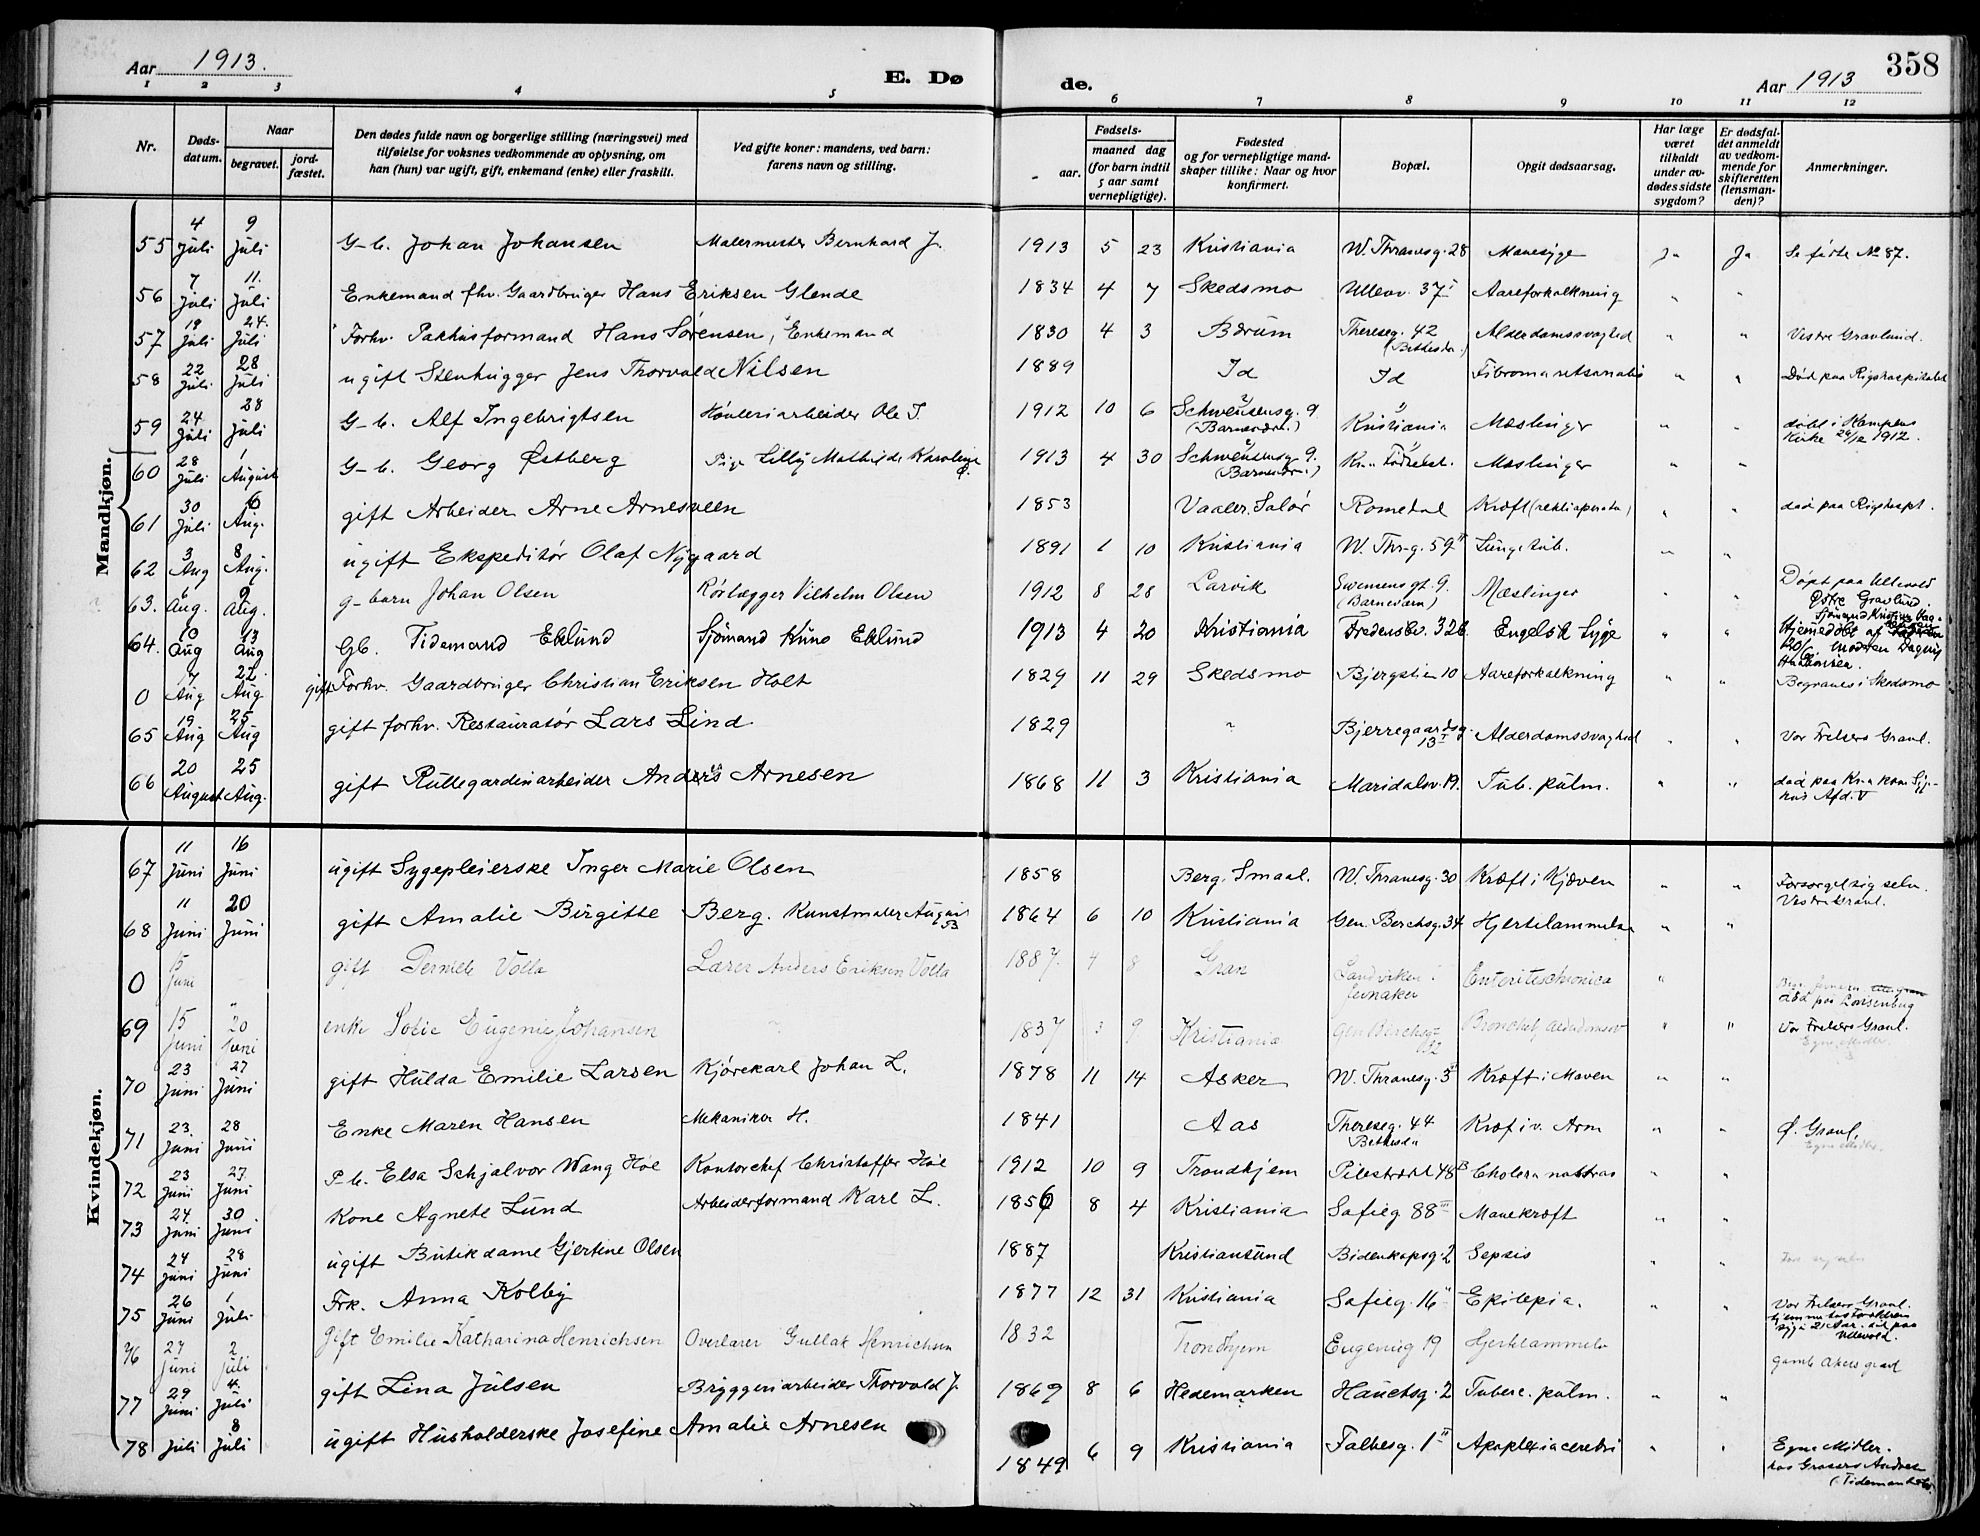 358
Aar 1913.
E. Døde.
Aar 1913
1 2 3 4 5 6 7 8 9 10 11 12
Nr.
Døds-datum.
Naar
begravet.
jord-fæstet.
Den dødes fulde navn og borgerlige stilling (næringsvei) med
tilføielse for voksnes vedkommende av oplysning, om
han (hun) var ugift, gift, enkemand (enke) eller fraskilt.
Ved gifte koner: mandens, ved barn:
farens navn og stilling.
aar.
Fødsels-
maaned dag
(for barn indtil
5 aar samt
vernepligtige).
Fødested
og for vernepligtige mand-
skaper tillike: Naar og hvor
konfirmert.
Bopæl.
Opgit dødsaarsag.
Har læge
været
tilkaldt
under av-
dødes sidste
sygdom?
Er dødsfal-
det anmeldt
av vedkom-
mende for
skifteretten
(lensman-
den)?
Anmerkninger.
Mandkjøn.
55 4 Juli 9 Juli G-b. Johan Johansen Malermester Bernhard J. 1913 5 23 Kristiania W. Thranesg. 28 Mavesyge Ja Ja Se fødte No 87.
56 7 Juli 11. Juli Enkemand fhv. Gaardbruger Hans Eriksen Glende 1834 4 7 Skedsmo Ullev. 37 Aareforkalkning " "
57 19 Juli 24. Juli Forhv. Pakhusformand Hans Sørensen, Enkemand 1830 4 3 Bærum Thereseg. 42 (Bethesda.) Alderdomssvaghed " " Vestre Gravlund.
58 22 Juli 28 Juli ugift Stenhugger Jens Thorvald Nilsen 1889 Id Id " " Død paa Rigshospitalet
59 24 Juli 28 Juli G-b. Alf Ingebrigtsen Høvleriarbeider Ole I. 1912 10 6 Schwensensg. 9. Kristiania Mæslinger " " døbt i Kampens Kirke 26/12 1912.
60 28 Juli 1 August G-b. Georg Østberg Pige Lilly Mathilde Karoline Ø. 1913 4 30 Schwensensg 9. Kr.a Fødselst. Mæslinger " "
61 30 Juli 6 Aug. gift Arbeider Arne Arnesveen 1853 Vaaler. Solør Romedal Kræft " " død paa Rigshospt.
62 3 Aug 8 Aug. ugift Ekspeditør Olaf Nygaard 1891 1 10 Kristiania W. Thr.g. 59 Lungetub. " "
63. 6 Aug. 9 Aug. g-barn Johan Olsen Rørlægger Vilhelm Olsen 1912 8 28 Larvik Svensensgt. 9. (Barneværn) Mæslinger " " Døpt paa Ullevold Østre Gravlund.
64. 10 Aug 13 Aug Gb. Tidemand Eklund Sjømand Kuno Eklund 1913 4 20 Kristiania Fredensbo. 32b. Engelsk Syge " " Hjemedøbt af
0 17 Aug 22. Aug gift Forhv. Gaardbruger Christian Eriksen Holt 1829 11 29 Skedsmo Bjergstien 10 Aareforkalkning " " Begraves i Skedsmo
65 19 Aug 25 Aug gift forhv. Restauratør Lars Lind 1829 " Bjerregaardsg. 13 Alderdomssvaghed " " Vor Frelsers Gravl.
66 20 August 25 Aug. gift Rullegardinarbeider Anders Arnesen 1868 11 3 Kristiania Maridalsv. 19. Tub. pulm. " " død paa Kr.a kom Syge- hus Afd. V
Kvindekjøn.
67 11 Juni 16 Juni ugift Sygepleierske Inger Marie Olsen 1858 Berg. Smaal. W. Thranesg. 30 Kræft i Kjæven " " Forsørget sig selv. Vestre Gravl.
68 " Juni 20 Juni gift Amalie Birgitte Berg. Kunstmaler August B 1864 6 10 Kristiania Gen. Berchsg. 34 Hjertelammelse " "
0 15 Juni gift Pernille Volla Lærer Anders Eriksen Volla 1887. 4 8 Gran Jevnaker Enteritis chronica "
69 15 Juni 20 Juni enke Sofie Eugenie Johansen 1837 3 9 Kristiania " " Vor Frelsers Gravl. Egne Midler.
70 23 Juni 27 Juni gift Hulda Emilie Larsen Kjørekarl Johan L. 1878 11 14 Asker W. Thranesg. 3 Kræft i Maven " "
71 23. Juni 28 Juni Enke Maren Hansen Mekaniker H. 1841 Aas Thereseg. 44 Bethesda Kræft i v. Arm " " Ø. Gravl. Egne Midler.
72 23 Juni 27. Juni P-b. Elsa Schjalvor Wang Høe Kontorchef Christoffer Høe 1912 10 9 Trondhjem Pilestræde 48 B Cholera nostras " "
73 24. Juni 30 Juni Kone Agnete Lund Arbeiderformand Karl L. 1856 8 4 Kristiania Sofieg 88 III Mavekræft " "
74 24 Juni 28 Juni ugift Butikdame Gjertine Olsen 1887 Kristiansund Bidenkapsg. 2 Sepsis " "
75 26 Juni 1 Juli Frk. Anna Kolby 1877 12 31 Kristiania Sofieg. 16 II Epilepsia. " " Vor Frelsers Gravl.
76 27 Juni 2 Juli Gift Emilie Katharina Henrichsen Overlærer Gullak Henrichsen 1832 Trondhjem Eugeniag 19 Hjertelammelse gamle Akers gravl
77 29 Juni 4. Juli gift Lina Julsen Bryggeriarbeider Thorvald J. 1869 8 6 Hedemarken Hauchsg. 2 Tuberc. pulm. " "
78 Juli 8 Juli ugift Husholderske Josefine Amalie Arnesen 1849 6 9 Kristiania Falbesg. 1 II Apoplexia cerebri " " Egne Midler.